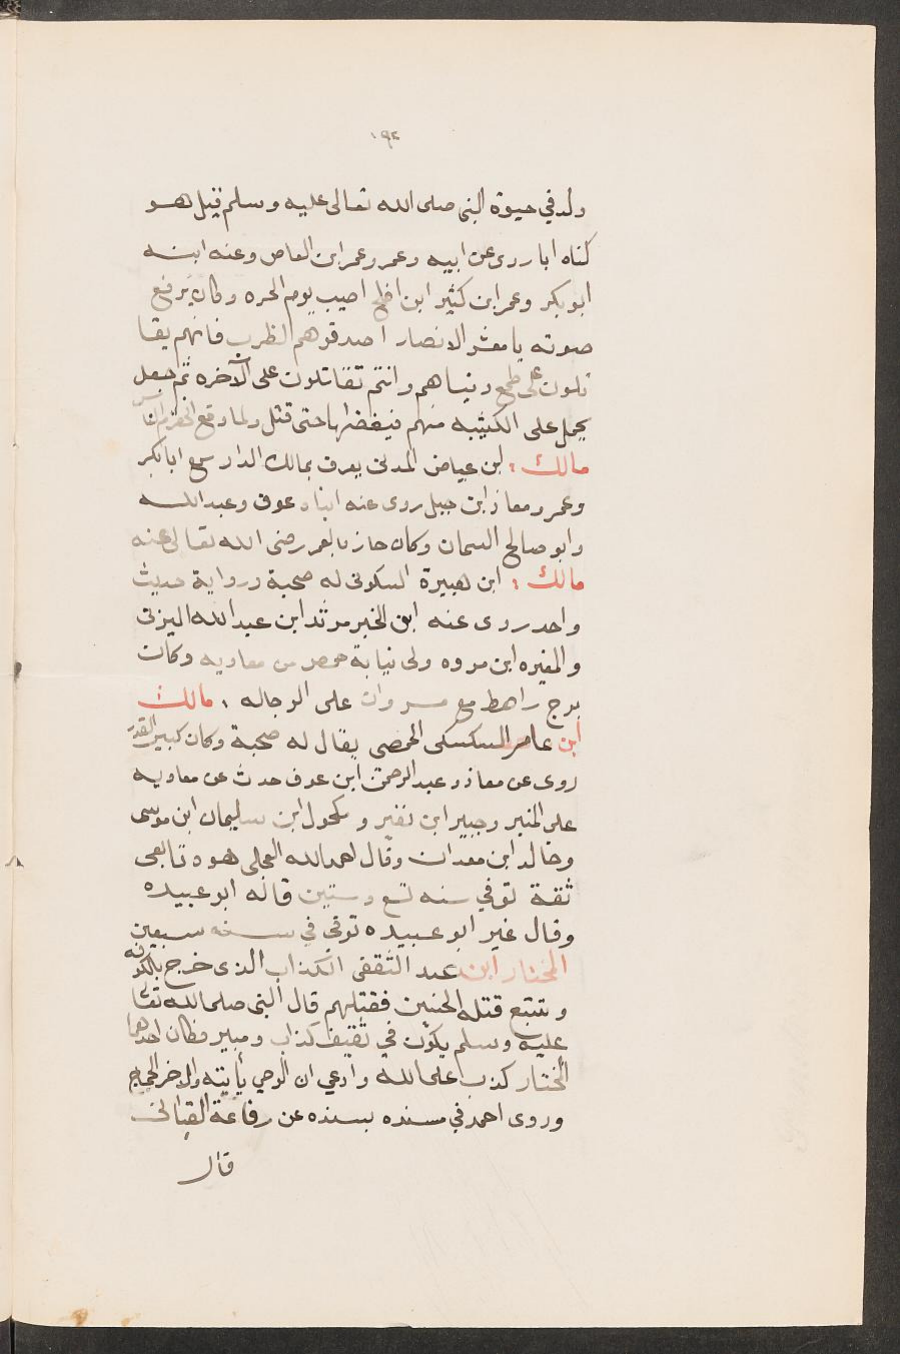 ١٩٢
ولد في حيوة النبي صلى الله تعالى عليه وسلم قيل هو
كناه ابا روى عن ابيه وعمر وعمر ابن العاص وعنه ابنه
ابو بكر وعمر ابن كثير ابن افلح اصيب يوم الحره وكان يرفع
صوته يا معشر الانصار اصدقوهم الظرب فانهم يقا
تلون على طمع دنياهم وانتم تقاتلون على الآخره ثم جعل
يحمل على الكثيبه منهم فيفضها حتى قتل ولما وقع
مالك ابن عياض المدنى يعرف بمالك الدار سمع ابا بكر
وعمر ومعاذ ابن جبل روى عنه ابناه عوف وعبد الله
وابو صالح السمان وكان خازنا لعمر رضى الله تعالى عنه
مالك ابن هبيرة السكونى له صحبة ورواية حديث
واحد روى عنه ابو الخير مرثد ابن عبد الله اليزنى
والمغيره ابن مروه ولى نيابة حمص من معاويه وكان
برج راهط مع مروان على الرجاله مالك
ابن عامر السكسكى الحمصى يقال له صحبة وكان كبير القدر
روى عن معاذ وعبد الرحمن ابن عوف حدث عن معاويه
على المنبر وجبير ابن نفير ومكحول ابن سليمان ابن موسى
وخالد ابن معدان وقال احمد الله العجلى هوه تابعى
ثقة توفي سنه تسع وستين قاله ابو عبيده
وقال غير ابو عبيده توفى في سنه سبعين
المختار ابن عبد الثقفى الكذاب الذى خرج بالكوفه
وتتبع قتلة الحسين فقتلهم قال النبى صلى الله تعالى
عليه وسلم يكون في ثقيف كذاب ومبير فكان احدهما
المختار كذب على الله وادعى ان الوحي يأيته والاخر الحجاج
وروى احمد في مسنده بسنده عن رفاعة القبانى
قال